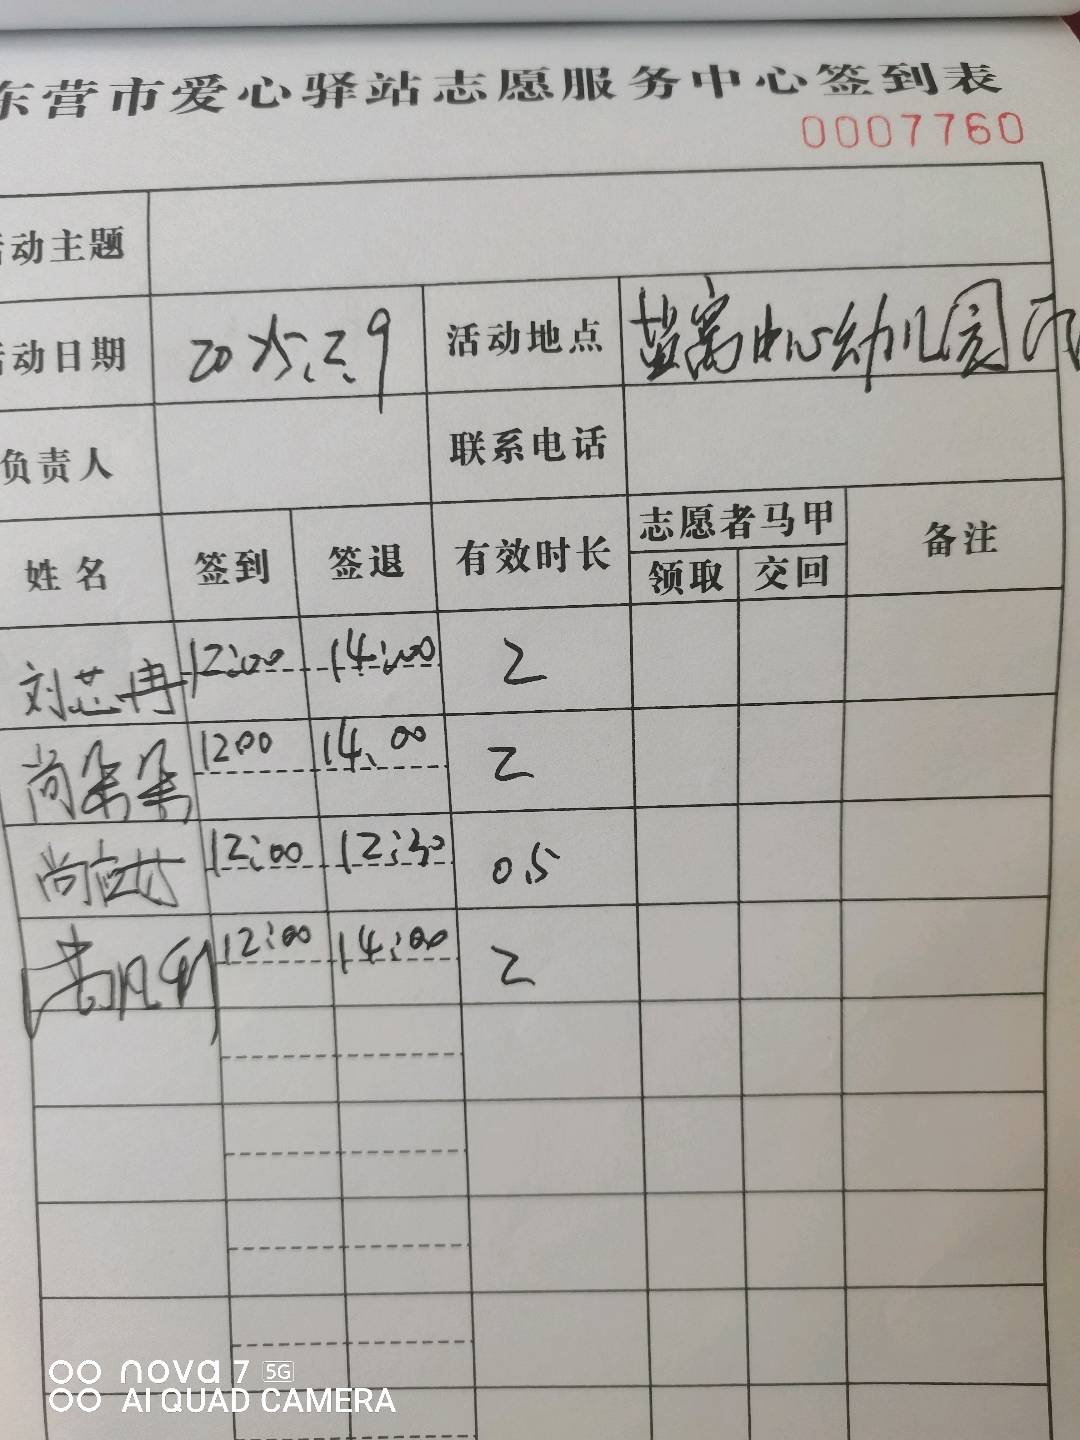 东营市爱心驿站志愿服务中心签到表
0007760
活动主题
活动日期 2025.2.9 活动地点 盐窝中心幼儿园
负责人 联系电话
姓名 签到 签退 有效时长 志愿者马甲 备注
领取 交回
刘芯冉 12:00 14:00 2
尚朵朵 1200 14.00 2
尚 12:00 12:30 0.5
12:00 14:00 2
nova 7 5G
AI QUAD CAMERA